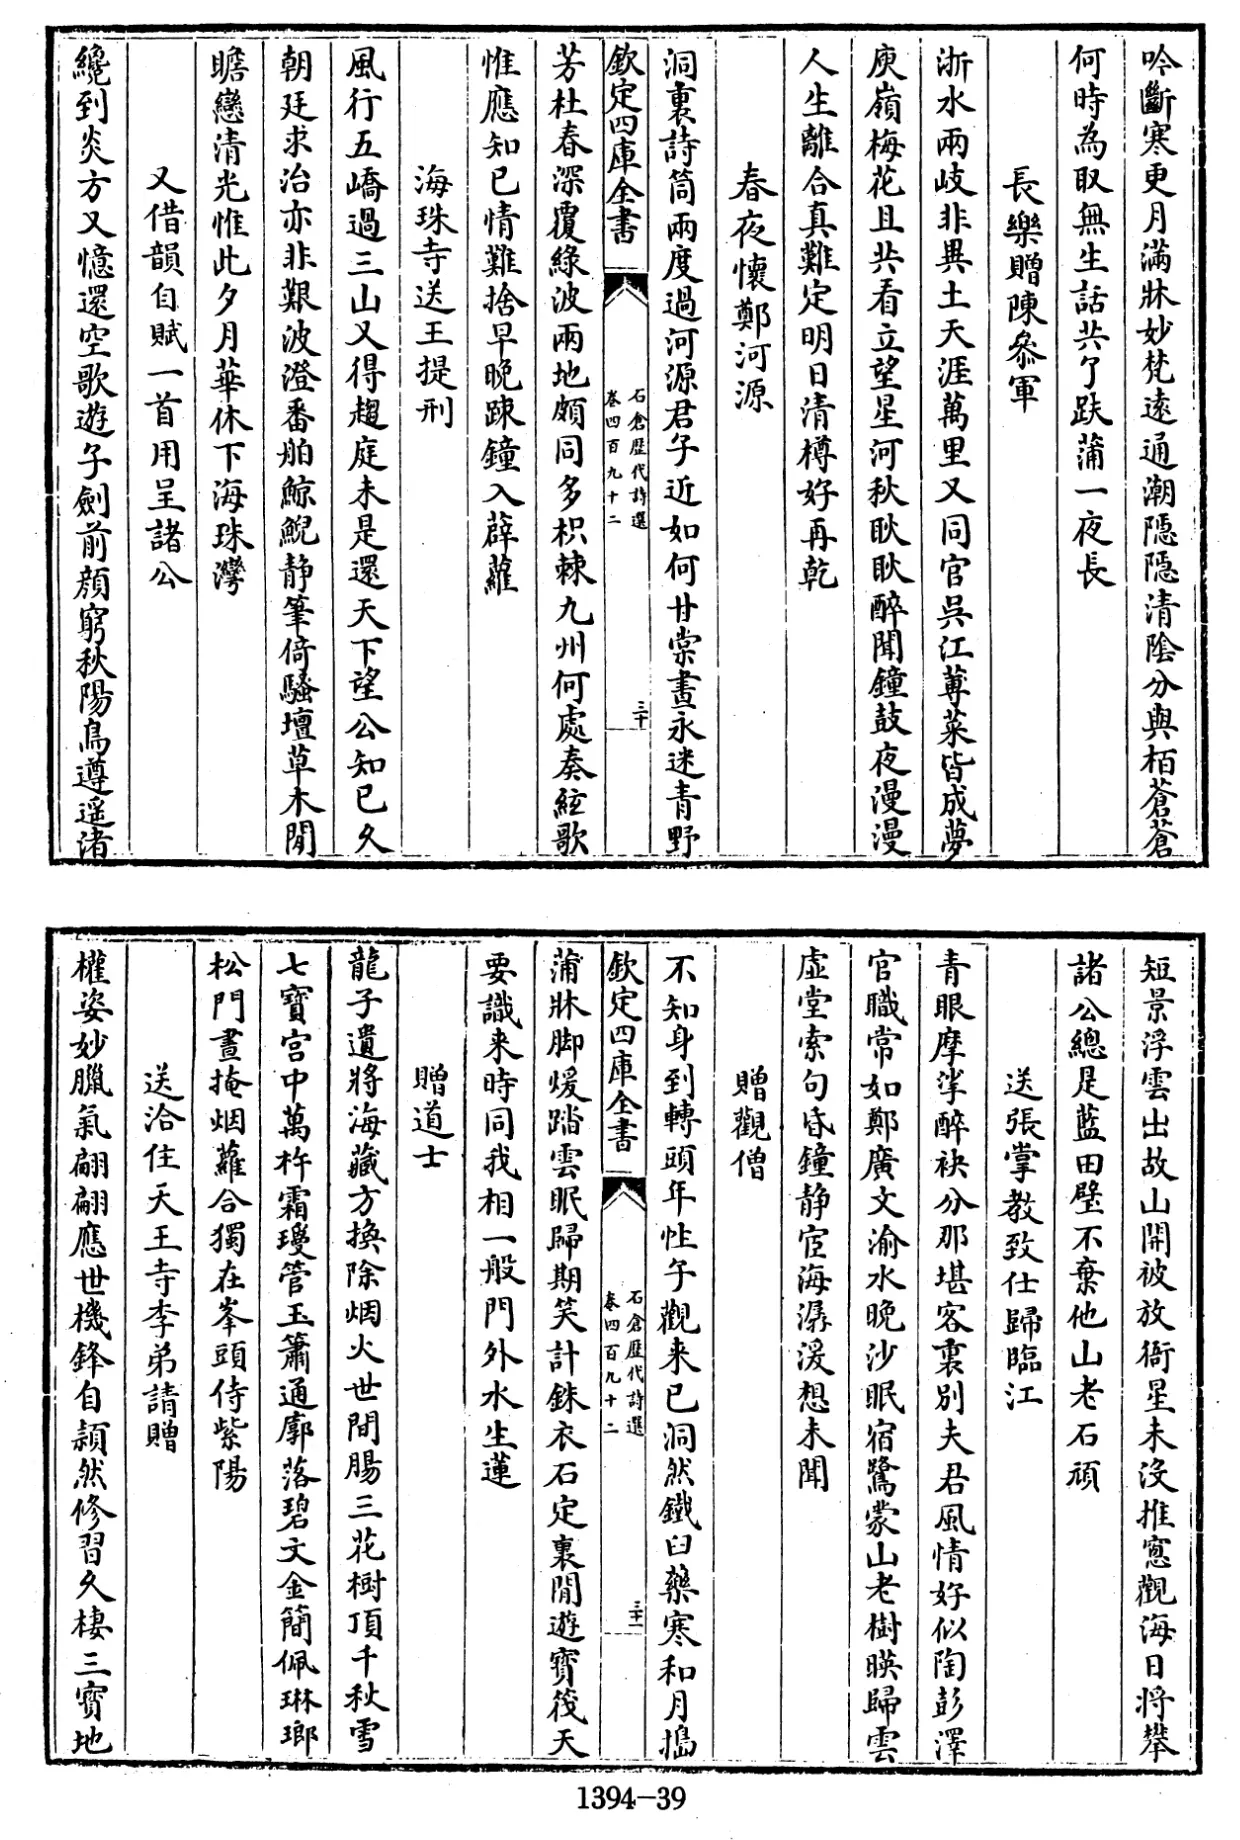 吟斷寒更月滿牀妙梵遠通潮隠隠清陰分與栢蒼蒼
何時為取無生話共了趺蒲一夜長
長樂贈陳叅軍
浙水兩岐非異土天涯萬里又同官吳江蓴菜皆成夢
庾嶺梅花且共看立望星河秋耿耿醉聞鐘鼓夜漫漫
人生離合真難定明日清樽好再乾
春夜懷鄭河源
洞裏詩筒兩度過河源君子近如何甘棠晝永迷青野
欽定四庫全書
石倉歷代詩選
卷四百九十二
三十
芳杜春深覆綠波兩地頗同多枳棘九州何處奏絃歌
惟應知己情難捨早晚踈鐘入薜蘿
海珠寺送王提刑
風行五嶠過三山又得趨庭未是還天下望公知已久
朝廷求治亦非艱波澄番舶鯨鯢静筆倚騷壇草木閒
瞻戀清光惟此夕月華休下海珠灣
又借韻自賦一首用呈諸公
纔到炎方又憶還空歌遊子劍前顔窮秋陽鳥遵遥渚
短景浮雲出故山開被放衙星未没推窻觀海日將攀
諸公總是藍田璧不棄他山老石頑
送張掌教致仕歸臨江
青眼摩挲醉袂分那堪客裏別夫君風情好似陶彭澤
官職常如鄭廣文渝水晚沙眠宿鷺蒙山老樹暎歸雲
虛堂索句昏鐘静宦海潺湲想未聞
贈觀僧
不知身到轉頭年性子觀来已洞然鐵臼藥寒和月搗
欽定四庫全書
石倉歷代詩選
卷四百九十二
三十一
蒲牀脚煖踏雲眠歸期笑計銖衣石定裏閒遊寳筏天
要識来時同我相一般門外水生蓮
贈道士
龍子遺將海藏方換除烟火世間腸三花樹頂千秋雪
七寳宫中萬杵霜璦管玉簫通廓落碧文金簡佩琳瑯
松門晝掩烟蘿合獨在峯頭侍紫陽
送洽住天王寺李弟請贈
權姿妙臘氣翩翩應世機鋒自頴然修習久棲三寳地
1394—39